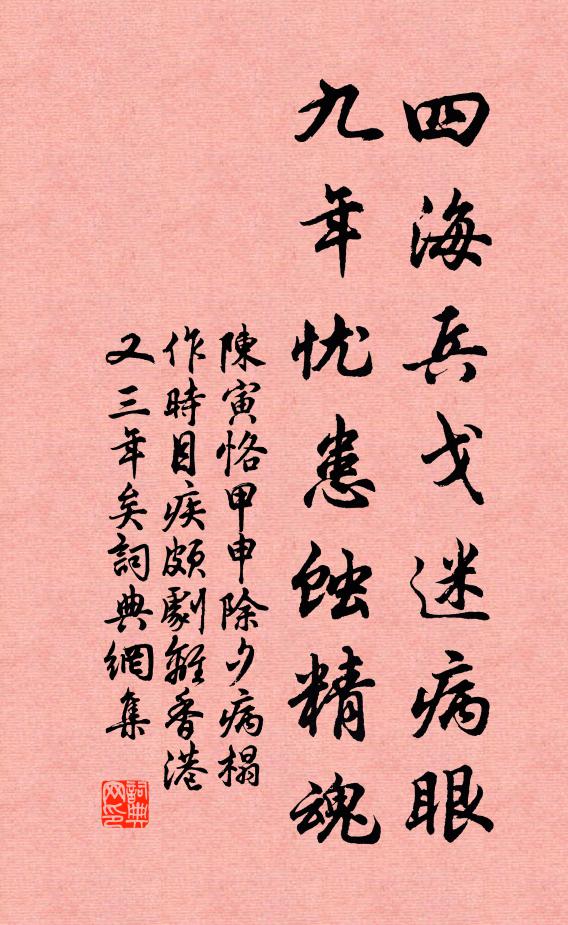 四海兵戈迷病眼
九年忧患蚀精魂
陳寅恪甲申除夕病榻
作時目疾頗劇離香港
又三年矣詞典網集
詞典
网印